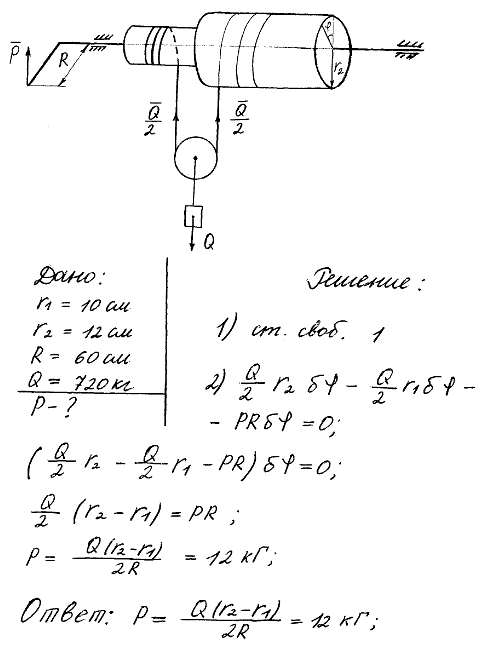 P̅
R
φ
r₂
Q̅/2
Q̅/2
Q
Дано:
r₁ = 10 см
r₂ = 12 см
R = 60 см
Q = 720 кг
P - ?
Решение:
1) ст. своб. 1
2) Q/2 r₂ δφ − Q/2 r₁ δφ −
− PRδφ = 0;
(Q/2 r₂ − Q/2 r₁ − PR) δφ = 0;
Q/2 (r₂ − r₁) = PR ;
P = Q(r₂−r₁)/2R = 12 кГ;
Ответ: P = Q(r₂−r₁)/2R = 12 кГ;